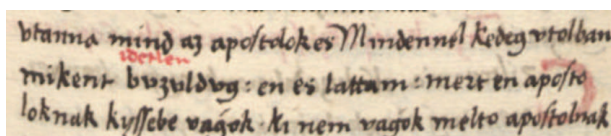 vtanna mind az apostolokes Mindennel kedeg vtolban
idetlen
mikent bvzvldvg : en es lattam : mert en aposto
loknak kyssebe vagok · ki nem vagok melto apostolnak